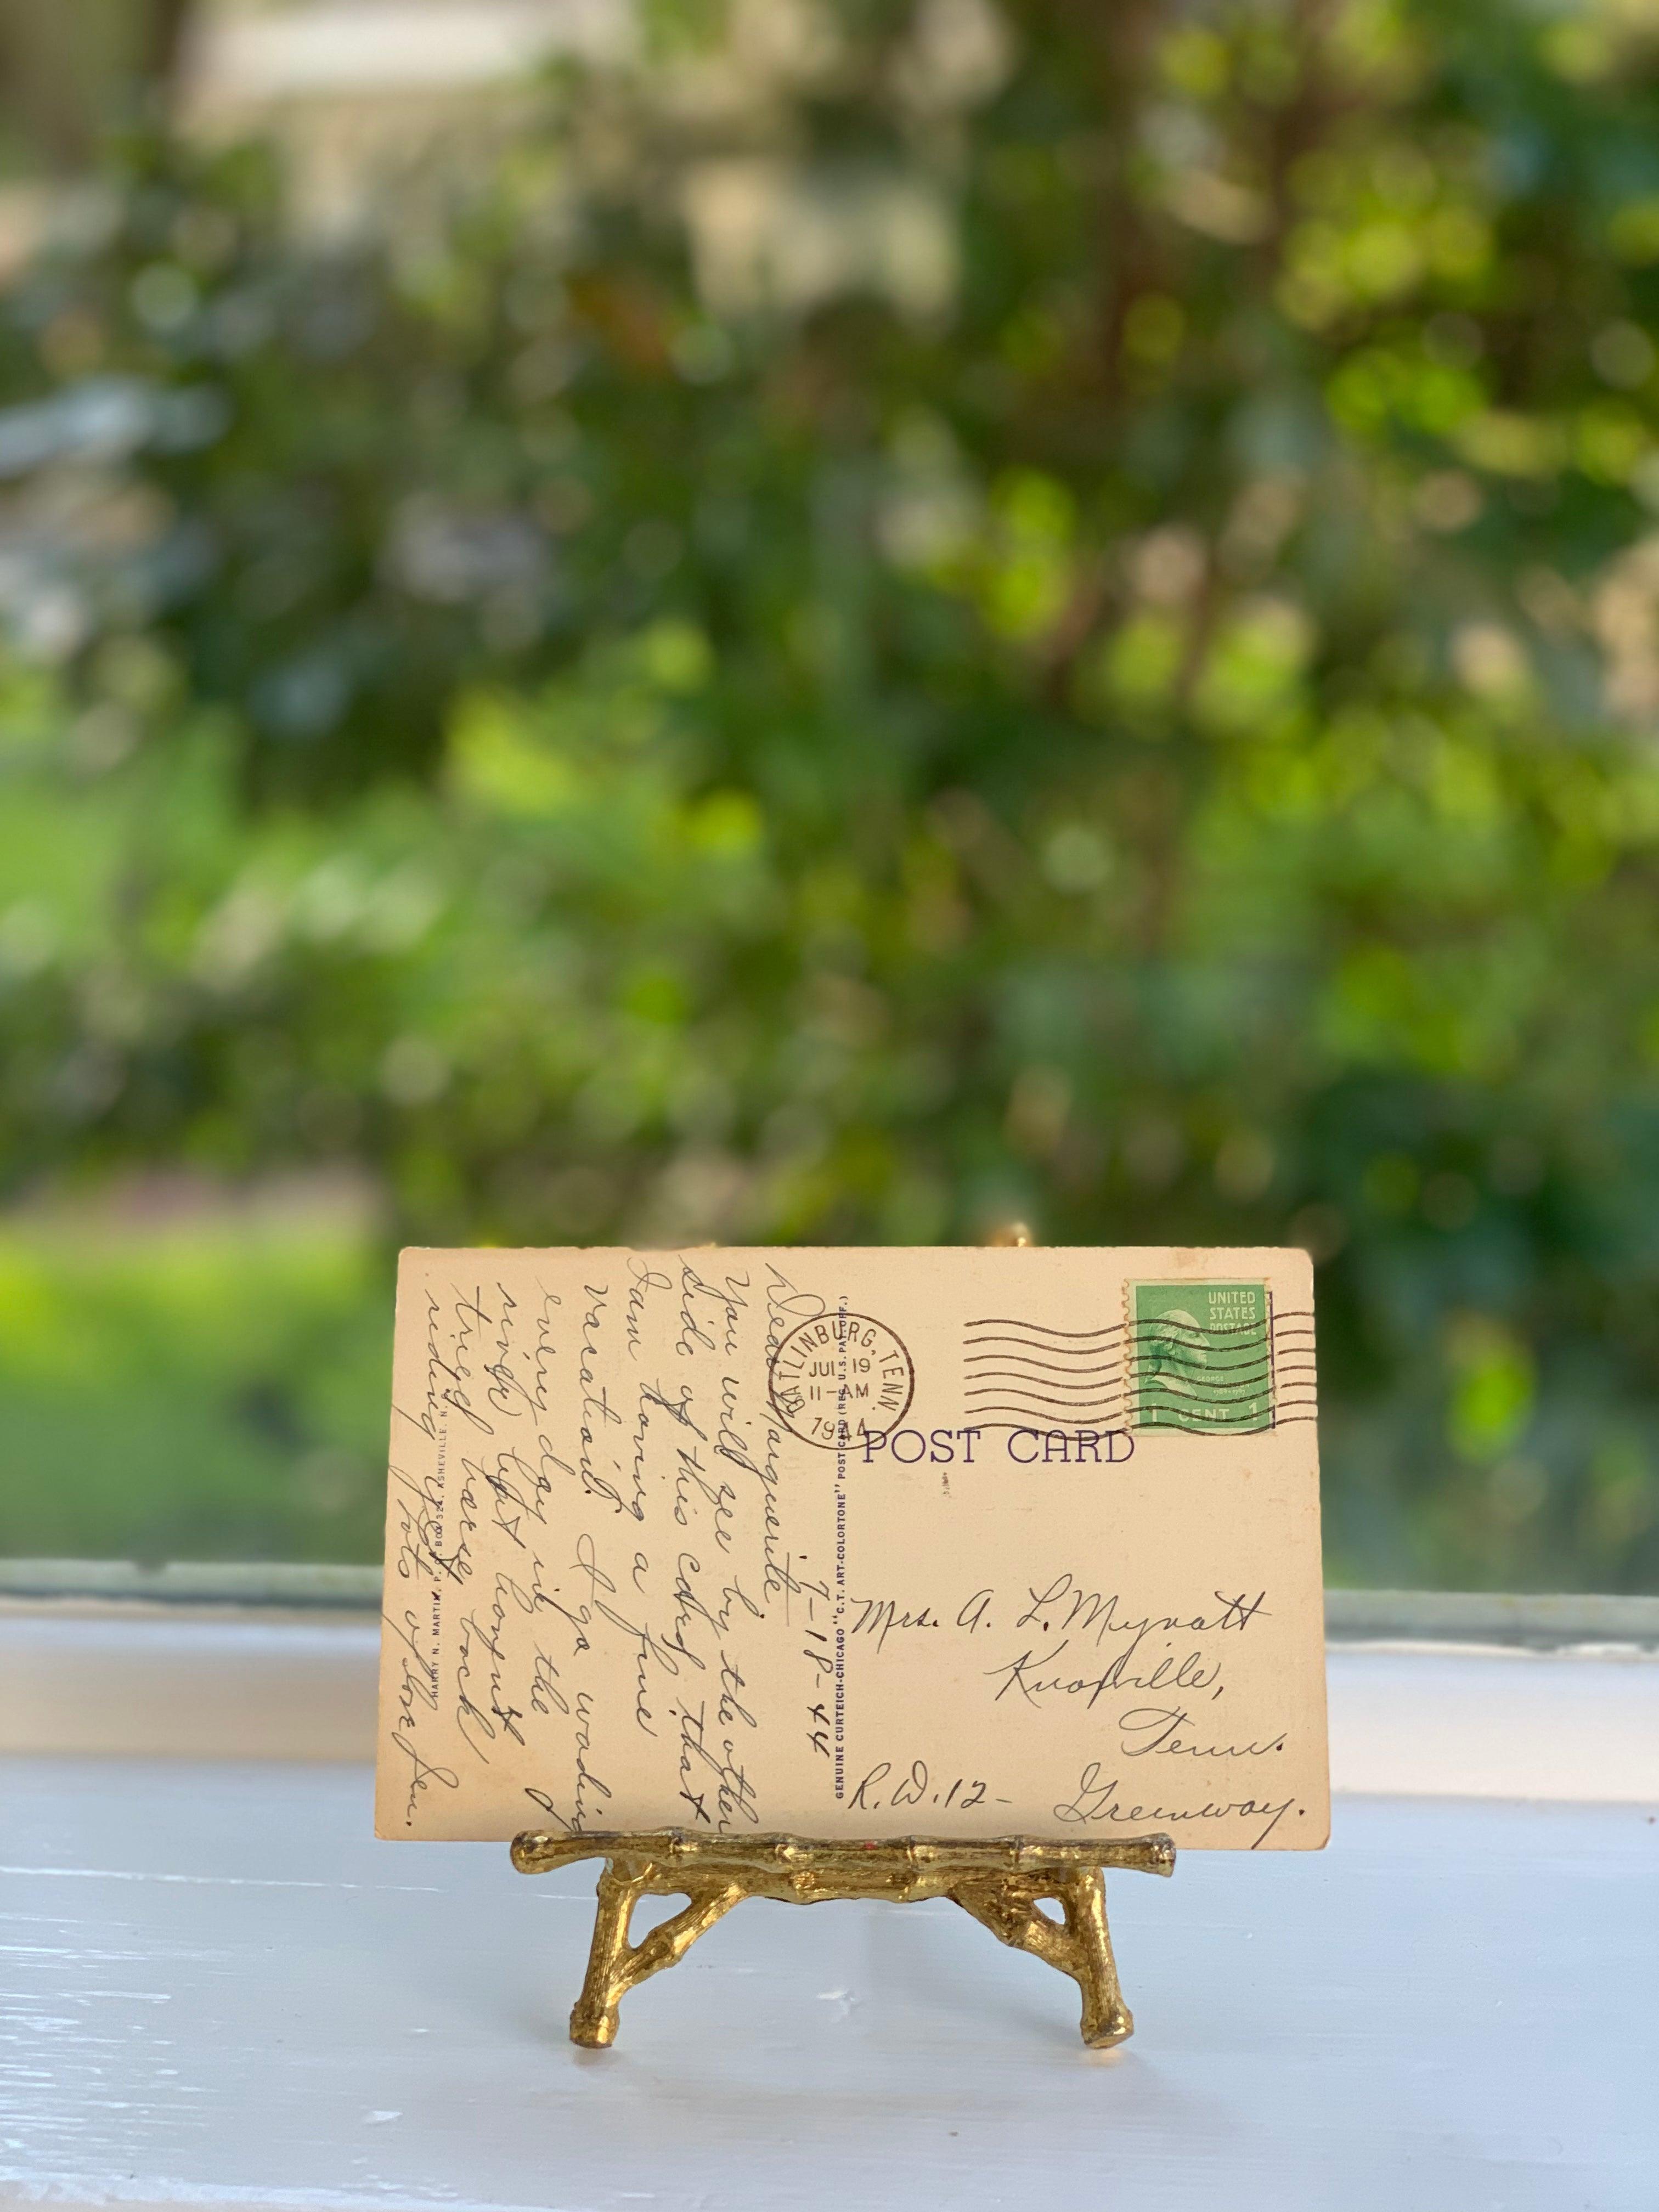 7-18-44
Dear Marguerite
You will see by the other
side of this card that
I am having a fine
vacation. I go wading
every day in the
river but haven't
tried horse back
riding yet.
Lots of love Jen.
HARRY N. MARTIN, P. O. BOX 524, ASHEVILLE, N.
GENUINE CURTEICH-CHICAGO "C.T. ART-COLORTONE" POST CARD (REG. U.S. PAT. OFF.)
GATLINBURG, TENN.
JUL 19
11-AM
1944
UNITED
STATES
POSTAGE
GEORGE
1 CENT 1
POST CARD
Mrs. A. L. Mynatt
Knoxville,
Tenn.
R.D.12- Greenway.